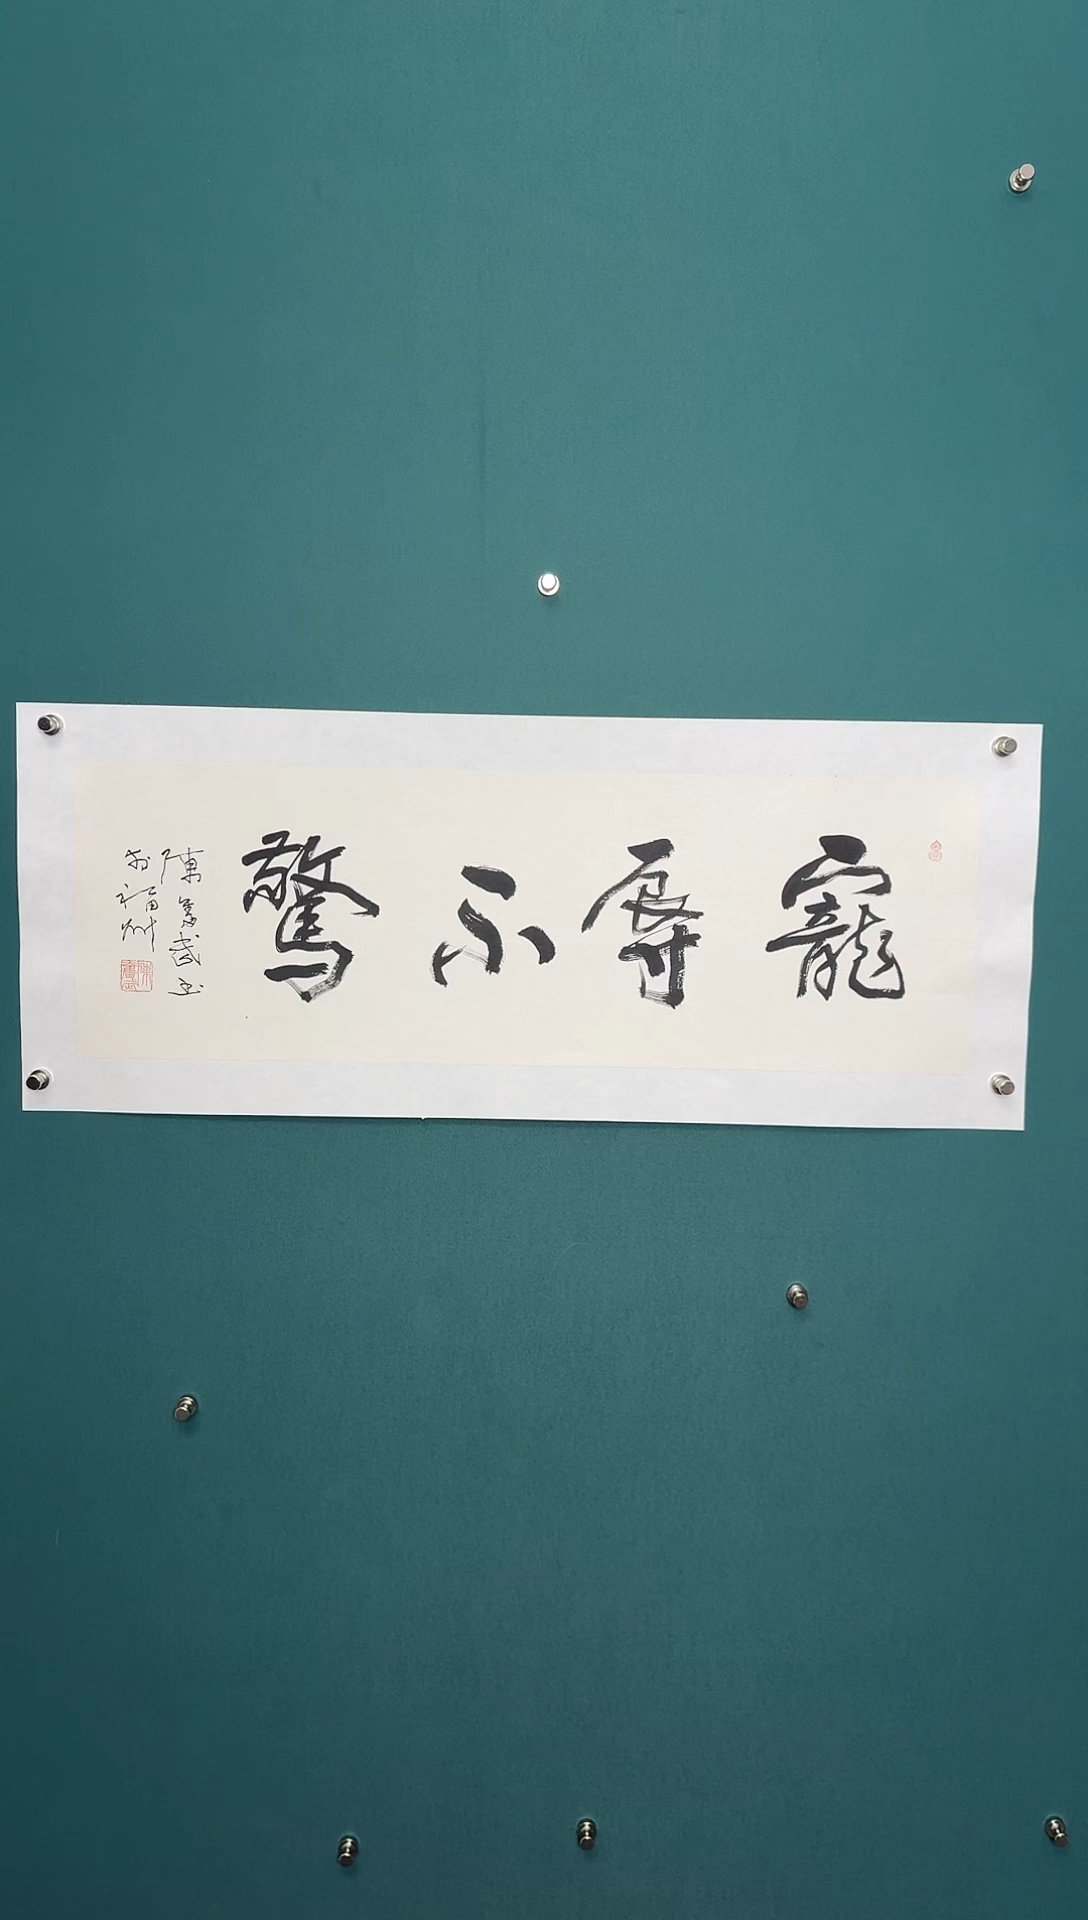 寵辱不驚
陳奮武書
於福州